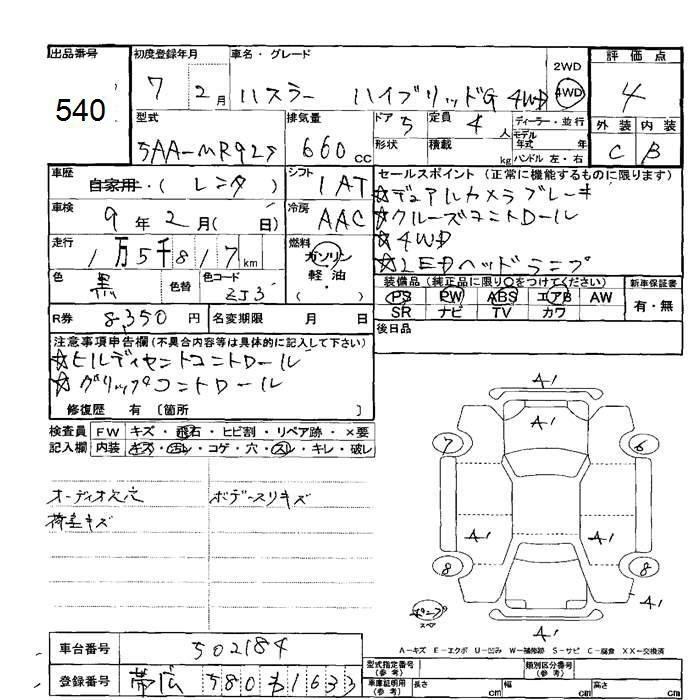 出品番号 初度登録年月 車名・グレード 2WD 評価点
540 7 2月 ハスラー ハイブリッドG 4WD 4WD 4
型式 排気量 ドア 5 定員 4人 ディーラー・並行 外装 内装
5AA-MR92S 660cc 形状 積載 kg モデル年式 年 C B
ハンドル 左・右
車歴 自家用・(レンタ) シフト 1AT セールスポイント(正常に機能するものに限ります)
車検 9年2月(日) 冷房 AAC ☆デュアルカメラブレーキ
☆クルーズコントロール
走行 1万5千817km 燃料 ガソリン 軽油 ・( ) ☆4WD
☆LEDヘッドランプ
色 黒 色替 色コード ZJ3 装備品(純正品に限り○をつけてください) 新車保証書
PS PW ABS エアB AW 有・無
R券 8,350円 名変期限 月 日 SR ナビ TV カワ
後日品
注意事項申告欄(不具合内容等は具体的に記入して下さい)
☆ヒルディセントコントロール
☆グリップコントロール
修復歴 有 〔箇所 〕
検査員 FW キズ・飛石・ヒビ割・リペア跡・×要
記入欄 内装 キズ・汚レ・コゲ・穴・スレ・キレ・破レ
オーディオ欠穴 ボデースリキズ
荷室キズ
A1
A1
7 6
A1 A1
8 8
A1
A1
A-キズ E-エクボ U-凹み W-補修跡 S-サビ C-腐食 XX-交換済
車台番号 502184 型式指定番号(参考) 類別区分番号(参考)
登録番号 帯広 580 1633 車庫証明用(参考) 長さ cm 幅 cm 高さ cm